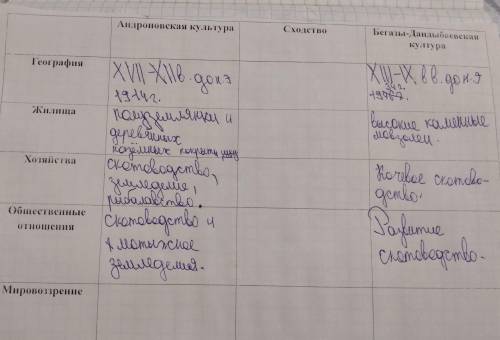 Андроновская культура Сходство Бегазы-Дандыбаевская
культура
География
XVII-XII в. до н э
1914г.
XIII-IX в в. до н.э
Жилища
полуземлянки и
деревянных
наземных
высокие каменные
мавзолеи.
Хозяйства
скотоводство,
земледелие,
рыбалавство.
Кочевое скотово-
дство.
Общественные
отношения
скотоводство и
мотыжное
земледелия.
Развитие
скотоводство.
Мировоззрение